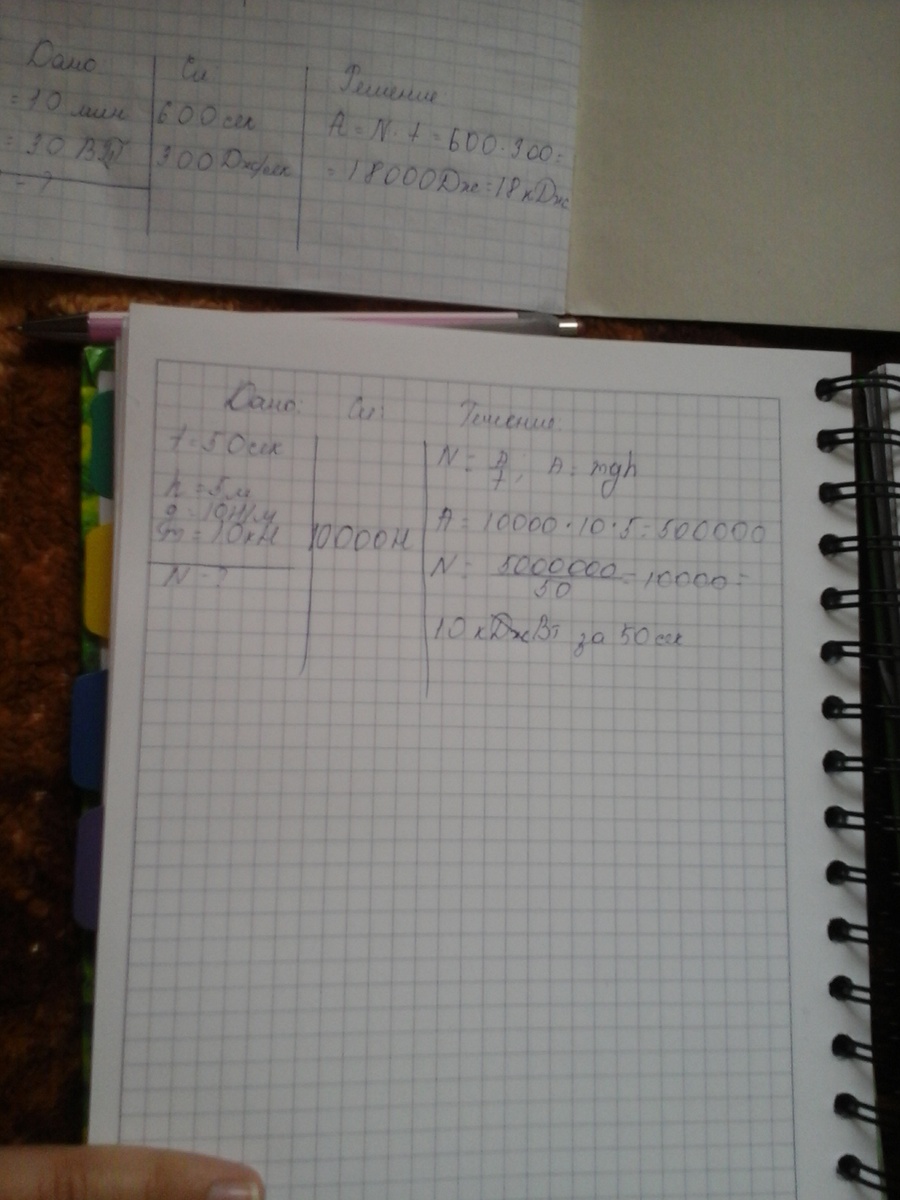 Дано
Си
Решение
=10 мин
600 сек
A = N · t = 600 · 300 =
= 30 Вт
300 Дж/сек
= 18000 Дж = 18 кДж
- ?
Дано:
Си:
Решение:
t = 50 сек
N = A/t ; A = mgh
h = 5 м
g = 10 Н/м
m = 10 кН
10000 Н
A = 10000 · 10 · 5 = 500000
N - ?
N = 5000000/50 = 10000 =
10 кДжВт за 50 сек